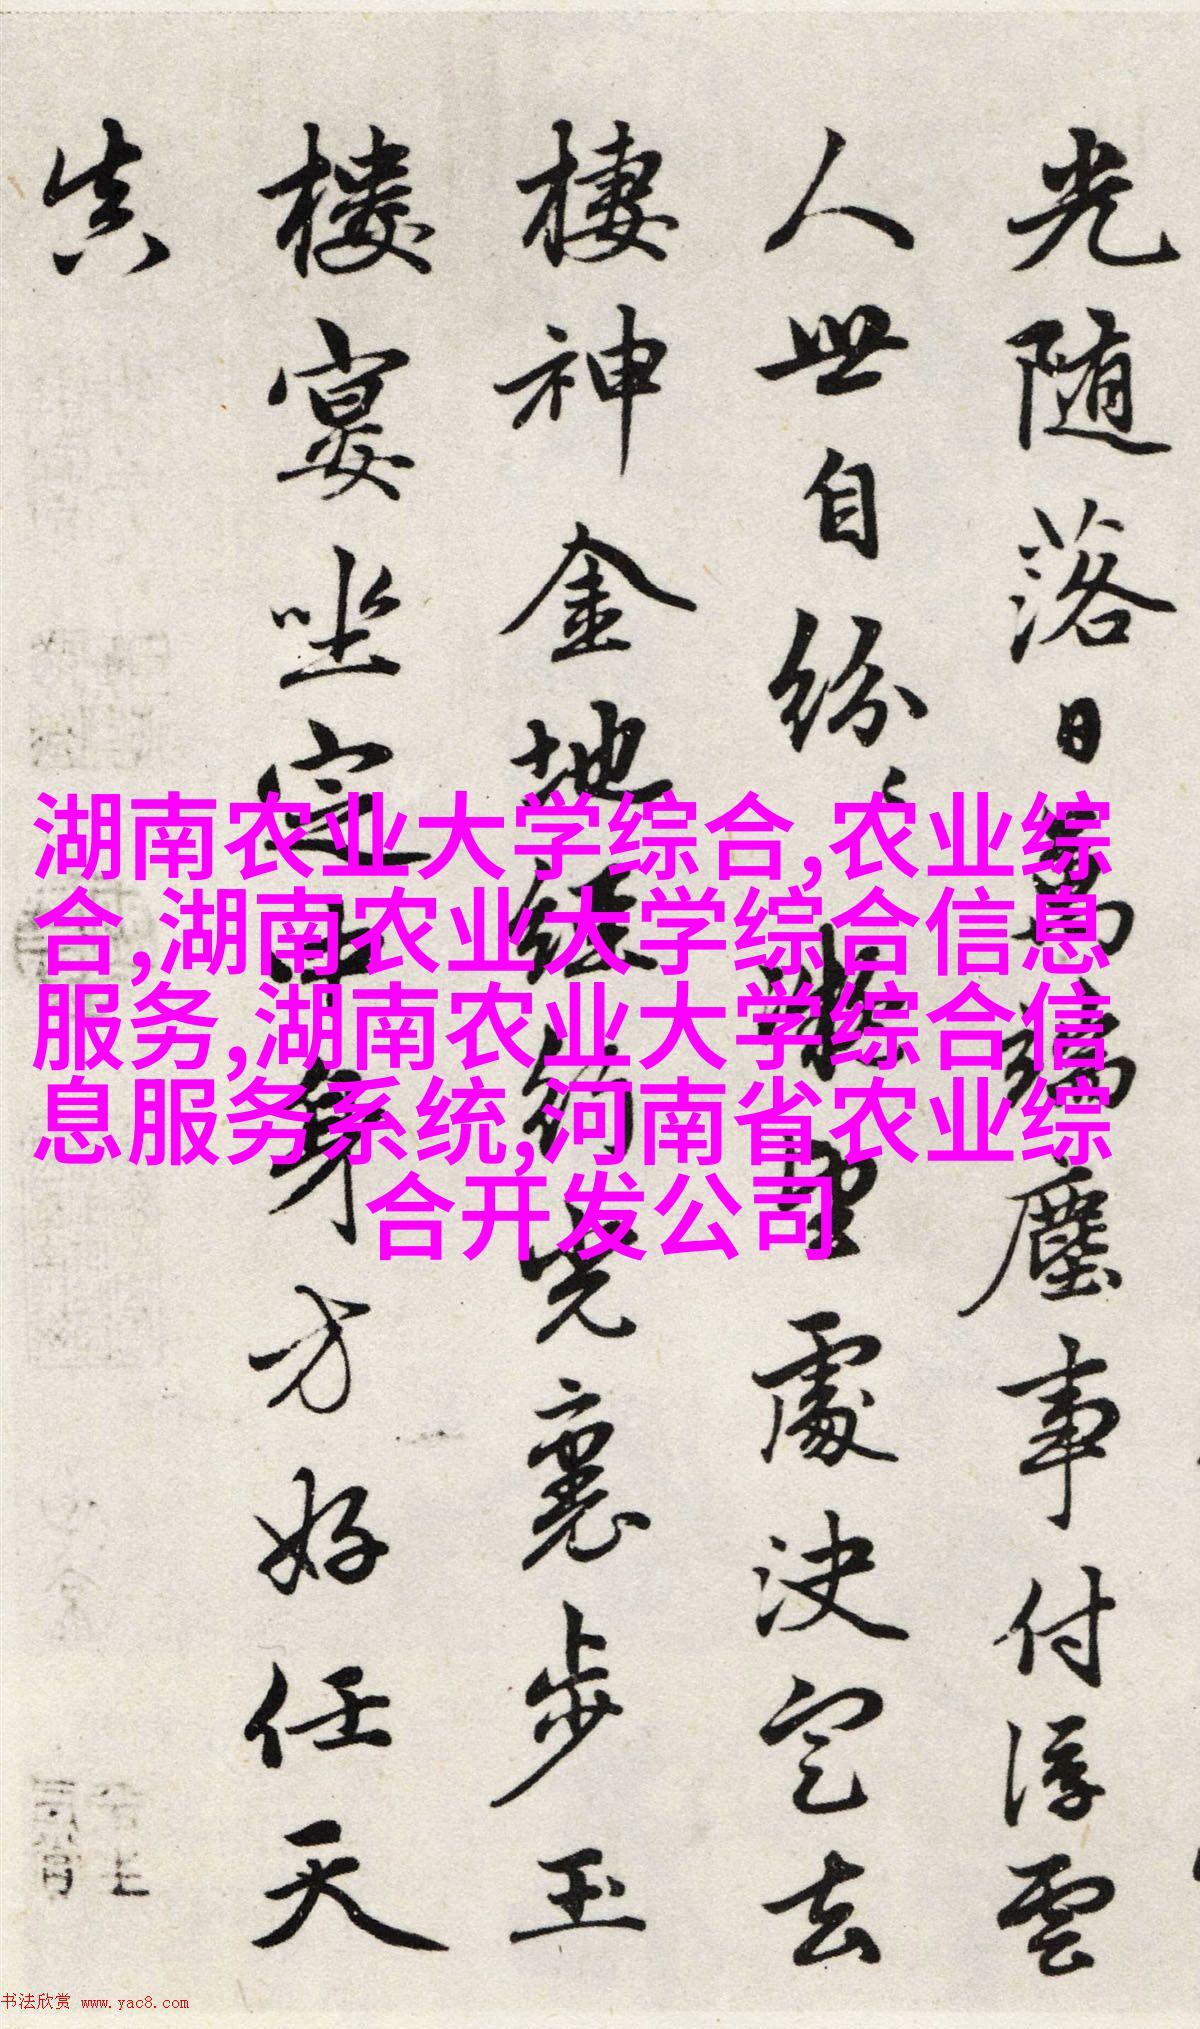 光随落日萬端塵事付浮雲
人世自紛〻
處決定去
棲神金地經行
裏步玉
樓宴坐定中身方好任天
真
湖南农业大学综合,农业综
合,湖南农业大学综合信息
服务,湖南农业大学综合信
息服务系统,河南省农业综
合开发公司
书法欣赏 www.yac8.com